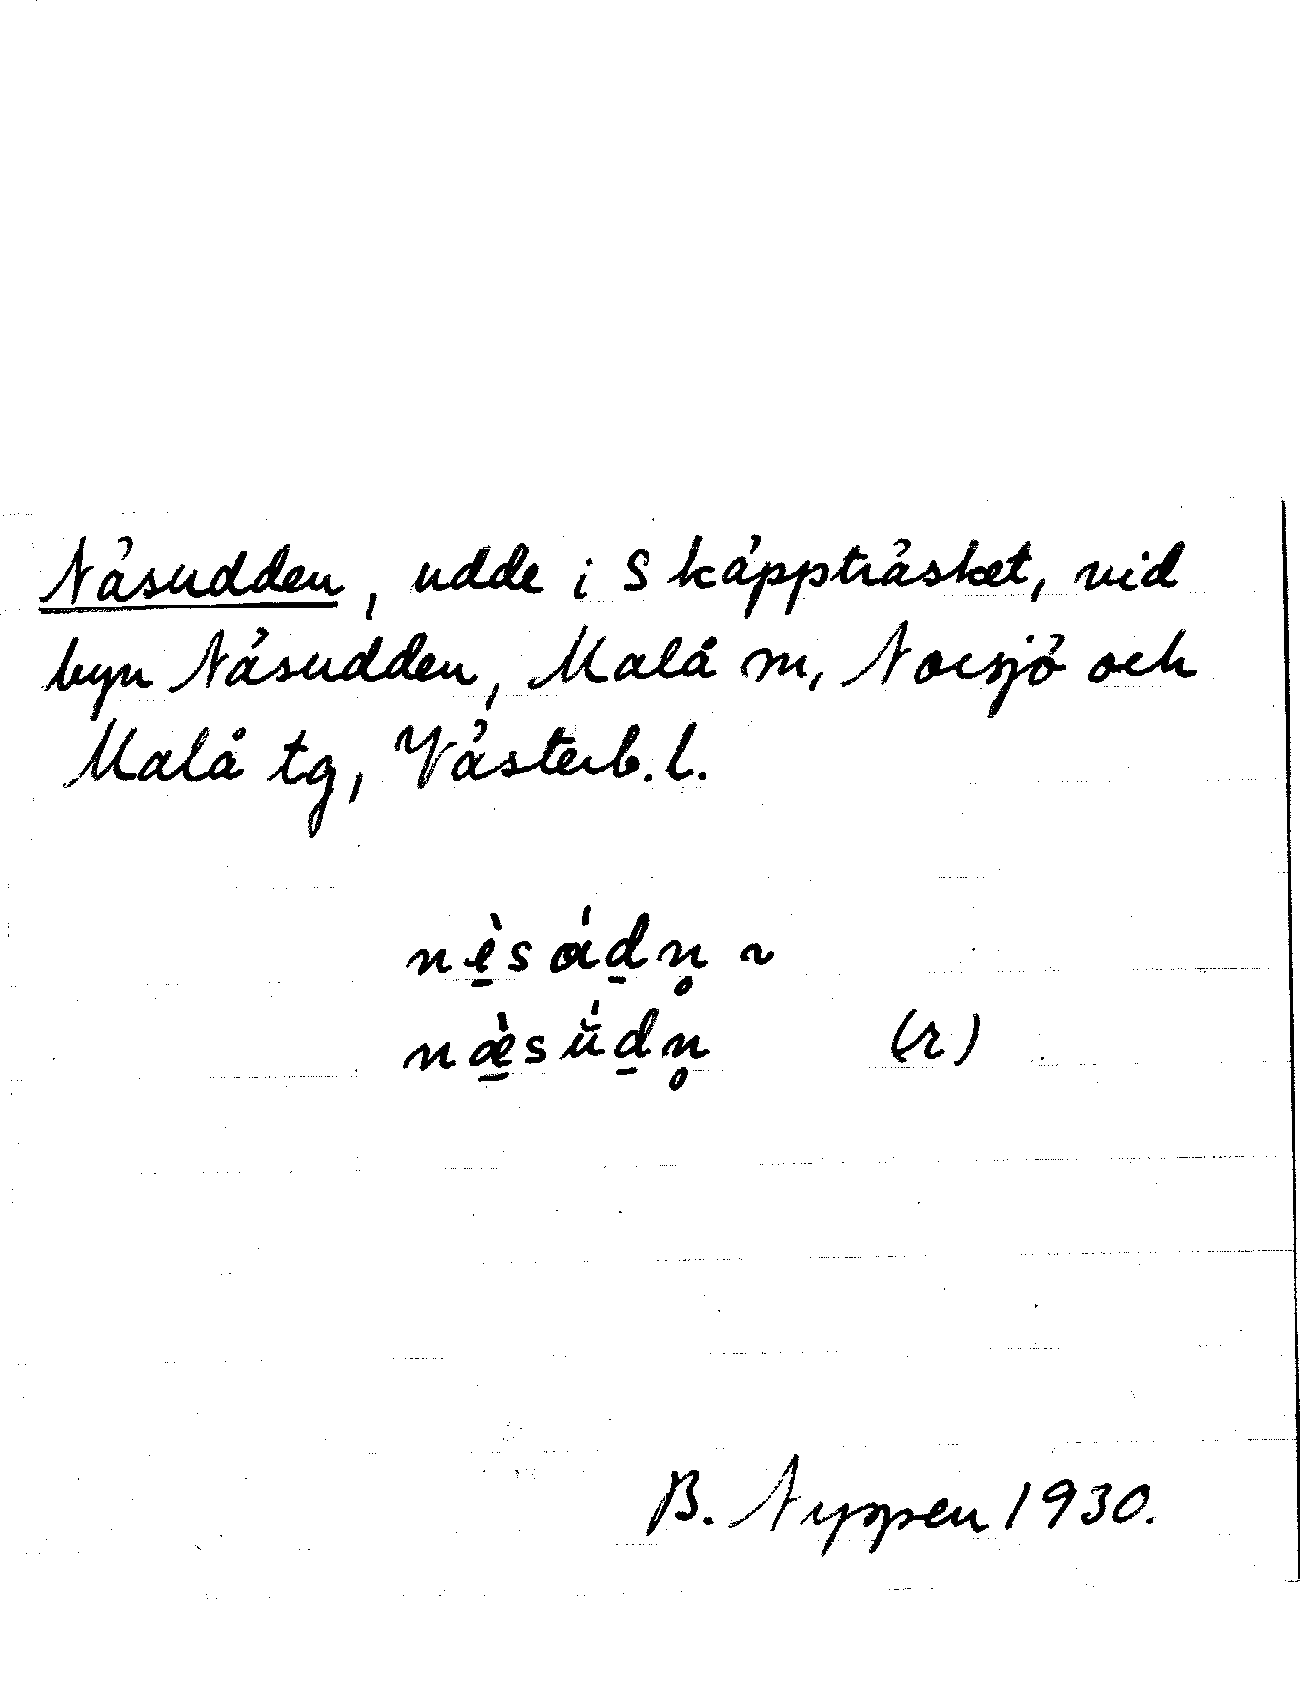 Näsudden, udde i Skäppträsket, vid
byn Näsudden, Malå m, Norsjö och
Malå tg, Västerb. l.
nè̱sȧ́ḏn̥ ~
næ̱̀sŭ́ḏn̥ (r)
B. Nyppen 1930.